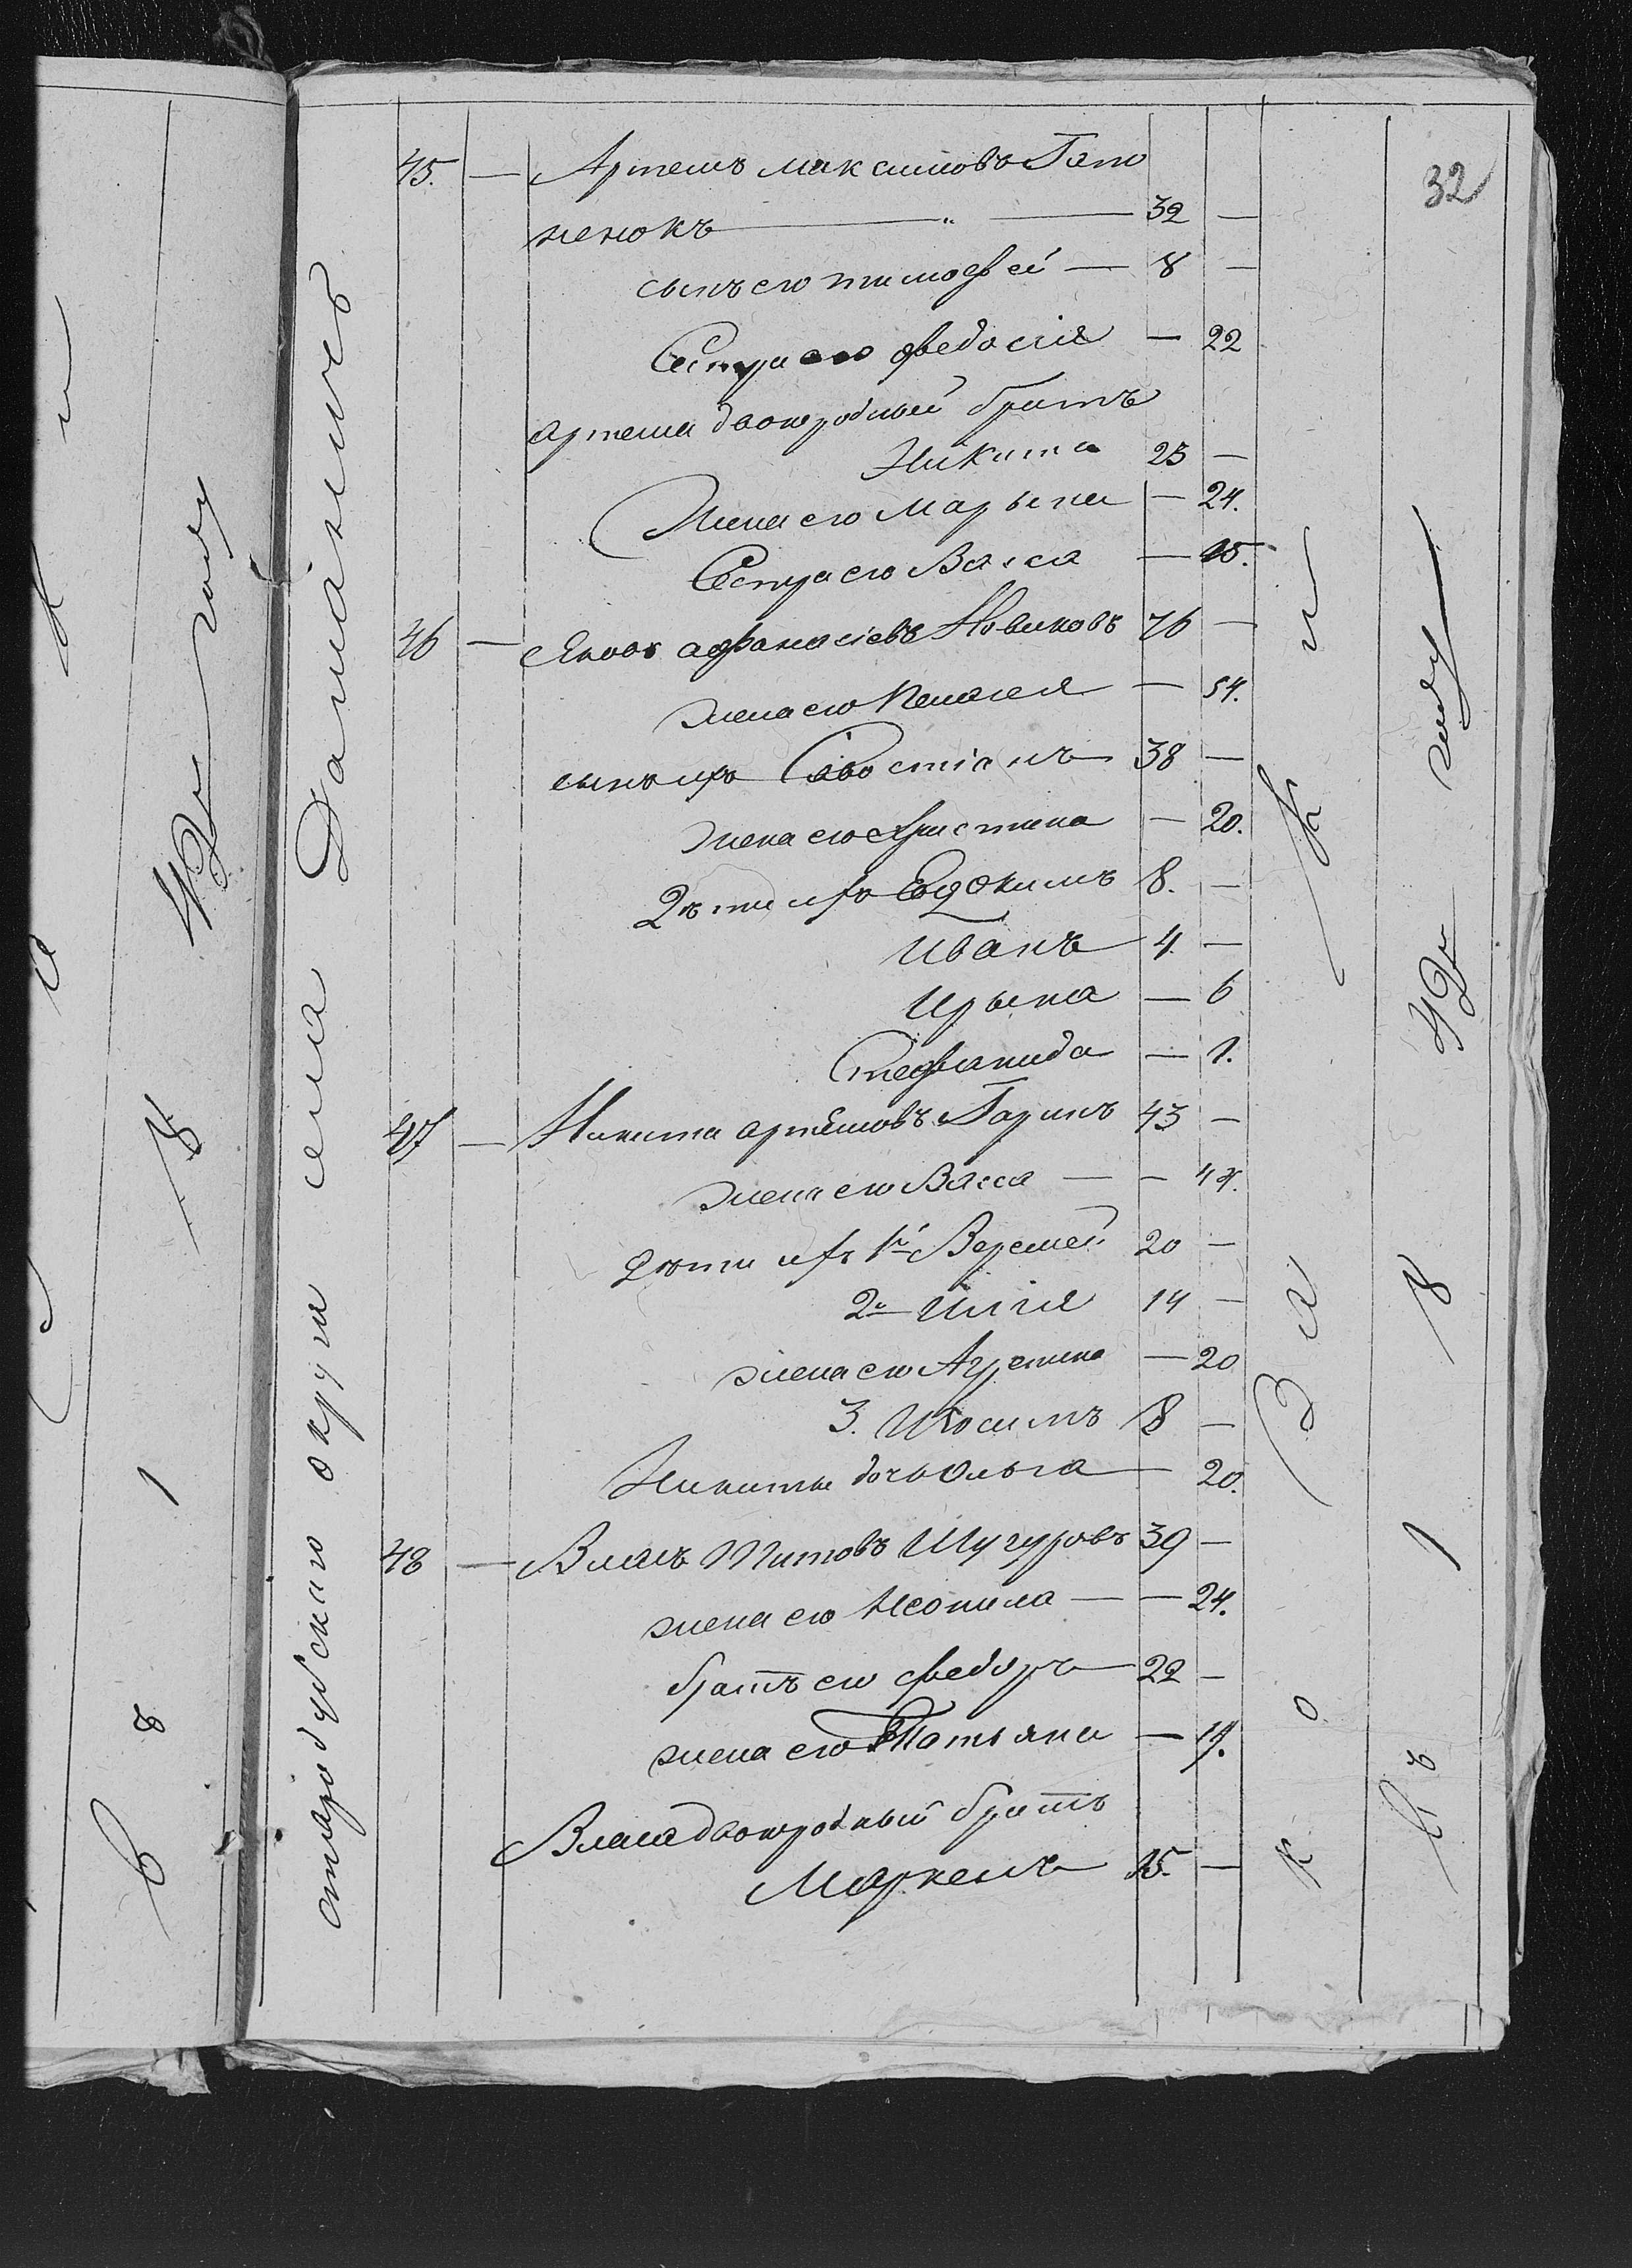 32
стародубскаго округи села Даманичъ
45. — Артемъ Максимовъ Гапо
ненокъ — " — 32 —
сынъ его тимофей — 8 —
Сестра его федосия — 22
Артема двоюродный братъ
Никита 23 —
Жена его Марына — 24.
Сестра его Васса — 15.
46 — Яковъ афанасіевъ Новиковъ 76 —
жена его Пелагея — 54.
сынъ ихъ Савостіанъ 38 —
жена его Христина — 20.
Дѣти ихъ Евдокимъ 8. —
Иванъ 4. —
Ирына — 6
Стефанида — 1.
47 — Никита артёмовъ Гаринъ 43 —
жена его Васса — — 44.
дѣти ихъ 1й Веремей 20 —
2й Илія 14 —
жена его Агрепина — 20
3. Изосимъ 8 —
Никиты дочь Ольга — 20.
48 — Власъ Титовъ Шугуровъ 39 —
жена его Неонила — — 24.
братъ его федоръ — 22 —
жена его Татьяна — 19.
Власа двоюродный братъ
Маркелъ 15. —
К о з а к и
Въ 1 8 году